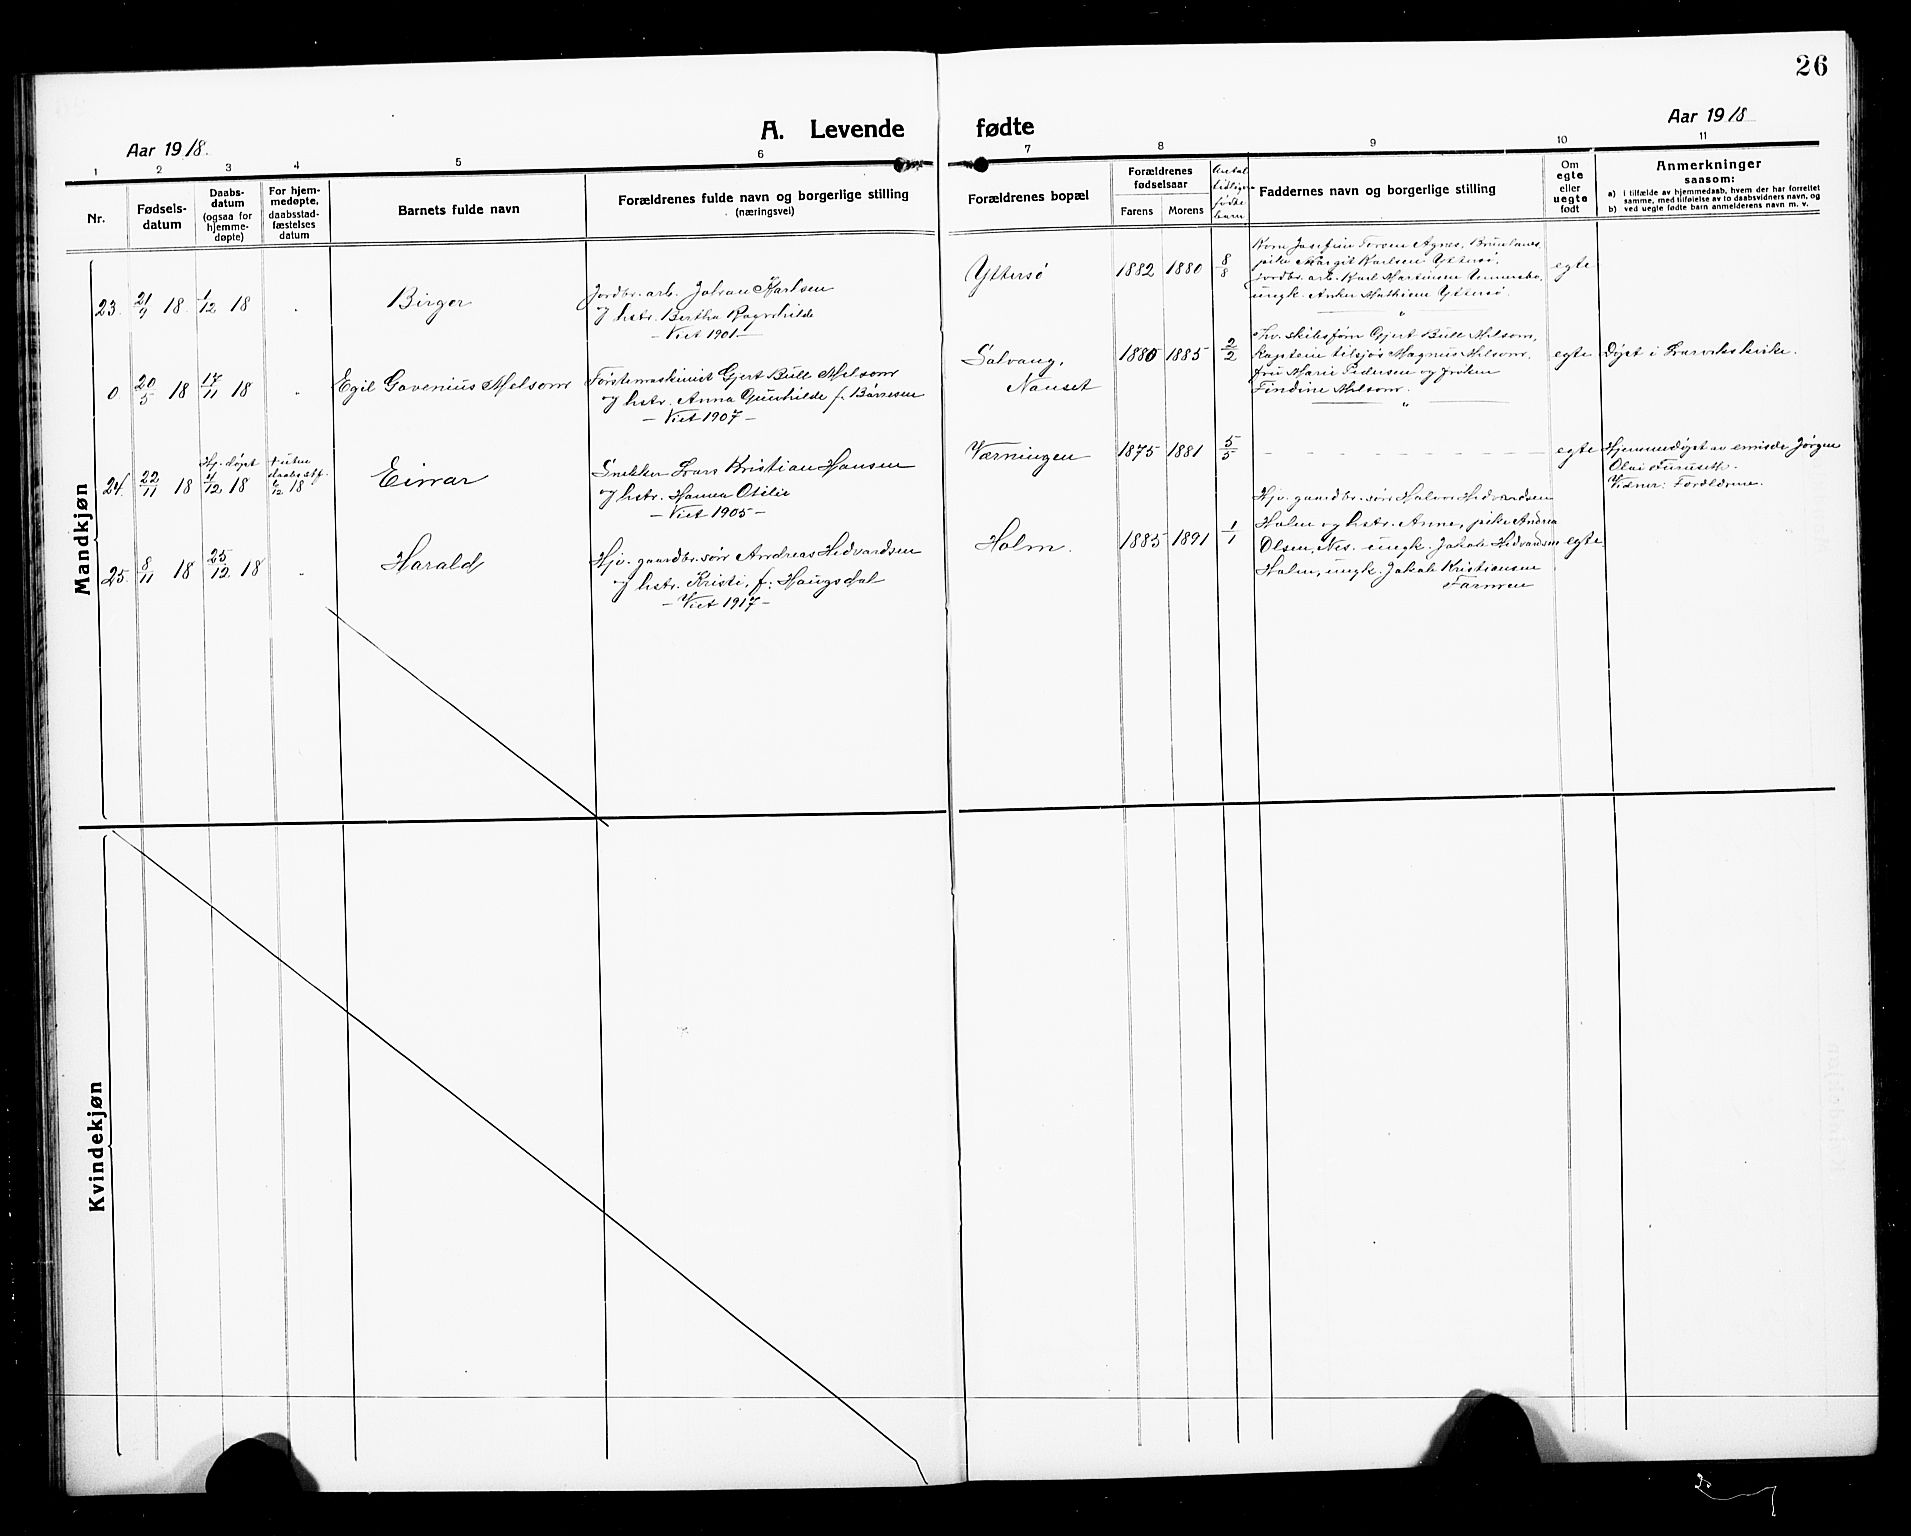 26
Aar 1918.
A. Levende
fødte
Aar 1918
1 2 3 4 5 6 7 8 9 10 11
Nr.
Fødsels-
datum
Daabs-
datum
(ogsaa for
hjemme-
døpte)
For hjem-
medøpte,
daabsstad-
fæstelses
datum
Barnets fulde navn
Forældrenes fulde navn og borgerlige stilling
(næringsvei)
Forældrenes bopæl
Forældrenes
fødselsaar
Farens Morens
Antal
tidligere
fødte
barn
Faddernes navn og borgerlige stilling
Om
egte
eller
uegte
født
Anmerkninger
saasom:
a) i tilfælde av hjemmedaab, hvem der har forrettet
samme, med tilføielse av to daabsvidners navn, og
b) ved uegte fødte barn anmelderens navn m. v.
Mandkjøn
23. 21/9 18. 1/12 18 Birger
Jordbr. arb. Johan Karlsen
og hstr. Bertha Ragnhilde
- Viet 1901 -
Yttersø 1882 1880 8/8
Kone Josefine Agnes,
pike Margit Karlsen Yttersø,
jordbr. arb. Karl Martinsen
ungk. Anker Mathisen Yttersø.
egte
0 20/5 18 17/11 18 " Egil Gavenius Melsom
Førstemaskinist Gjert Bull Melsom
og hstr. Anna Gunhilde f. Børresen
- Viet 1907 -
Solvang,
Nanset
1880 1885 2/2
Hv. skibsfører Gjert Bull Melsom,
kaptein tilsjøs Magnus Melsom,
fru Marie Pedersen og frøken
Findine Melsom.
egte Døpt i Larviks kirke.
24. 22/11 18 Hj. døpt
1/12 18 + uten
daabsstf.
18
Einar
Snekker Lars Kristian Hansen
og hstr. Hanna Otilie
- Viet 1905 -
Værningen 1875 1881 5/5 egte
Hjemmedøpt av emisær Jørgen
Olai Furuseth.
Vidner: Forældrene.
25. 8/11 18 25/12 18 Harald
Hjv. gaardbr. søn Andreas Hedvardsen
og hstr. Kristi, f. Haugsdal
- Viet 1917 -
Holm. 1885 1891 1/1
Hjv. gaardbr. søn Halvor Hedvardsen
Holm og hstr. Anne, pike Andrea
Olsen, Nes. ungk. Jakob Hedvardsen
Holm, ungk. Jakob Kristiansen
Farmen
egte.
Kvindekjøn